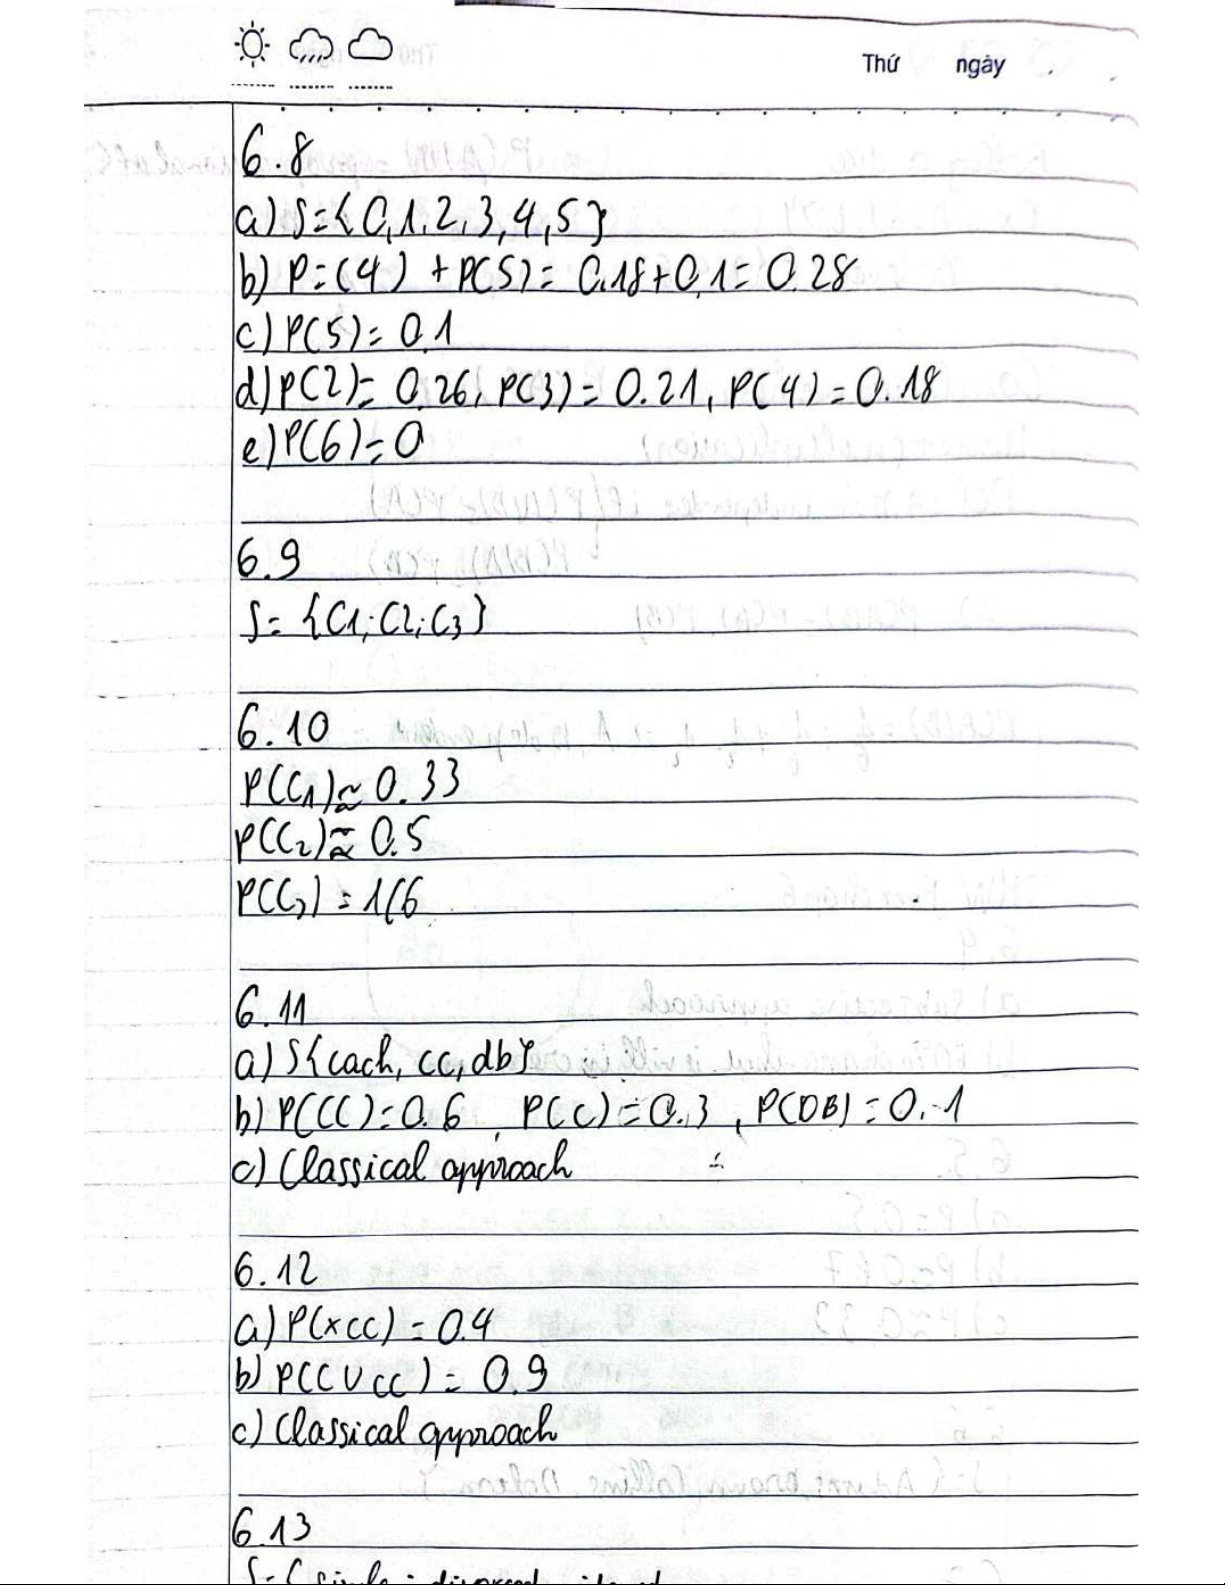 Thứ ngày
6.8
a) S={0,1,2,3,4,5}
b) P=(4) + P(5)= 0.18+0.1= 0.28
c) P(5)= 0.1
d) P(2)= 0.26, P(3)= 0.21, P(4)=0.18
e) P(6)=0
6.9
S= {C1; C2; C3}
6.10
P(C1)≈ 0.33
P(C2)≈ 0.5
P(C3) = 1/6
6.11
a) S{cach, cc, db}
b) P(CC)=0.6, P(C)=0.3, P(DB)=0.1
c) Classical approach
6.12
a) P(xcc) = 0.4
b) P(C∪CC) = 0.9
c) Classical approach
6.13
S={ single; divorced